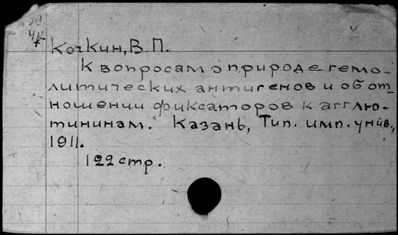 Кочкин, В. П.
К вопросам о природе гемо-
литических антигенов и об от
ношении фиксаторов к агглю-
тининам. Казань, Тип. имп. унив.,
1911.
122 стр.